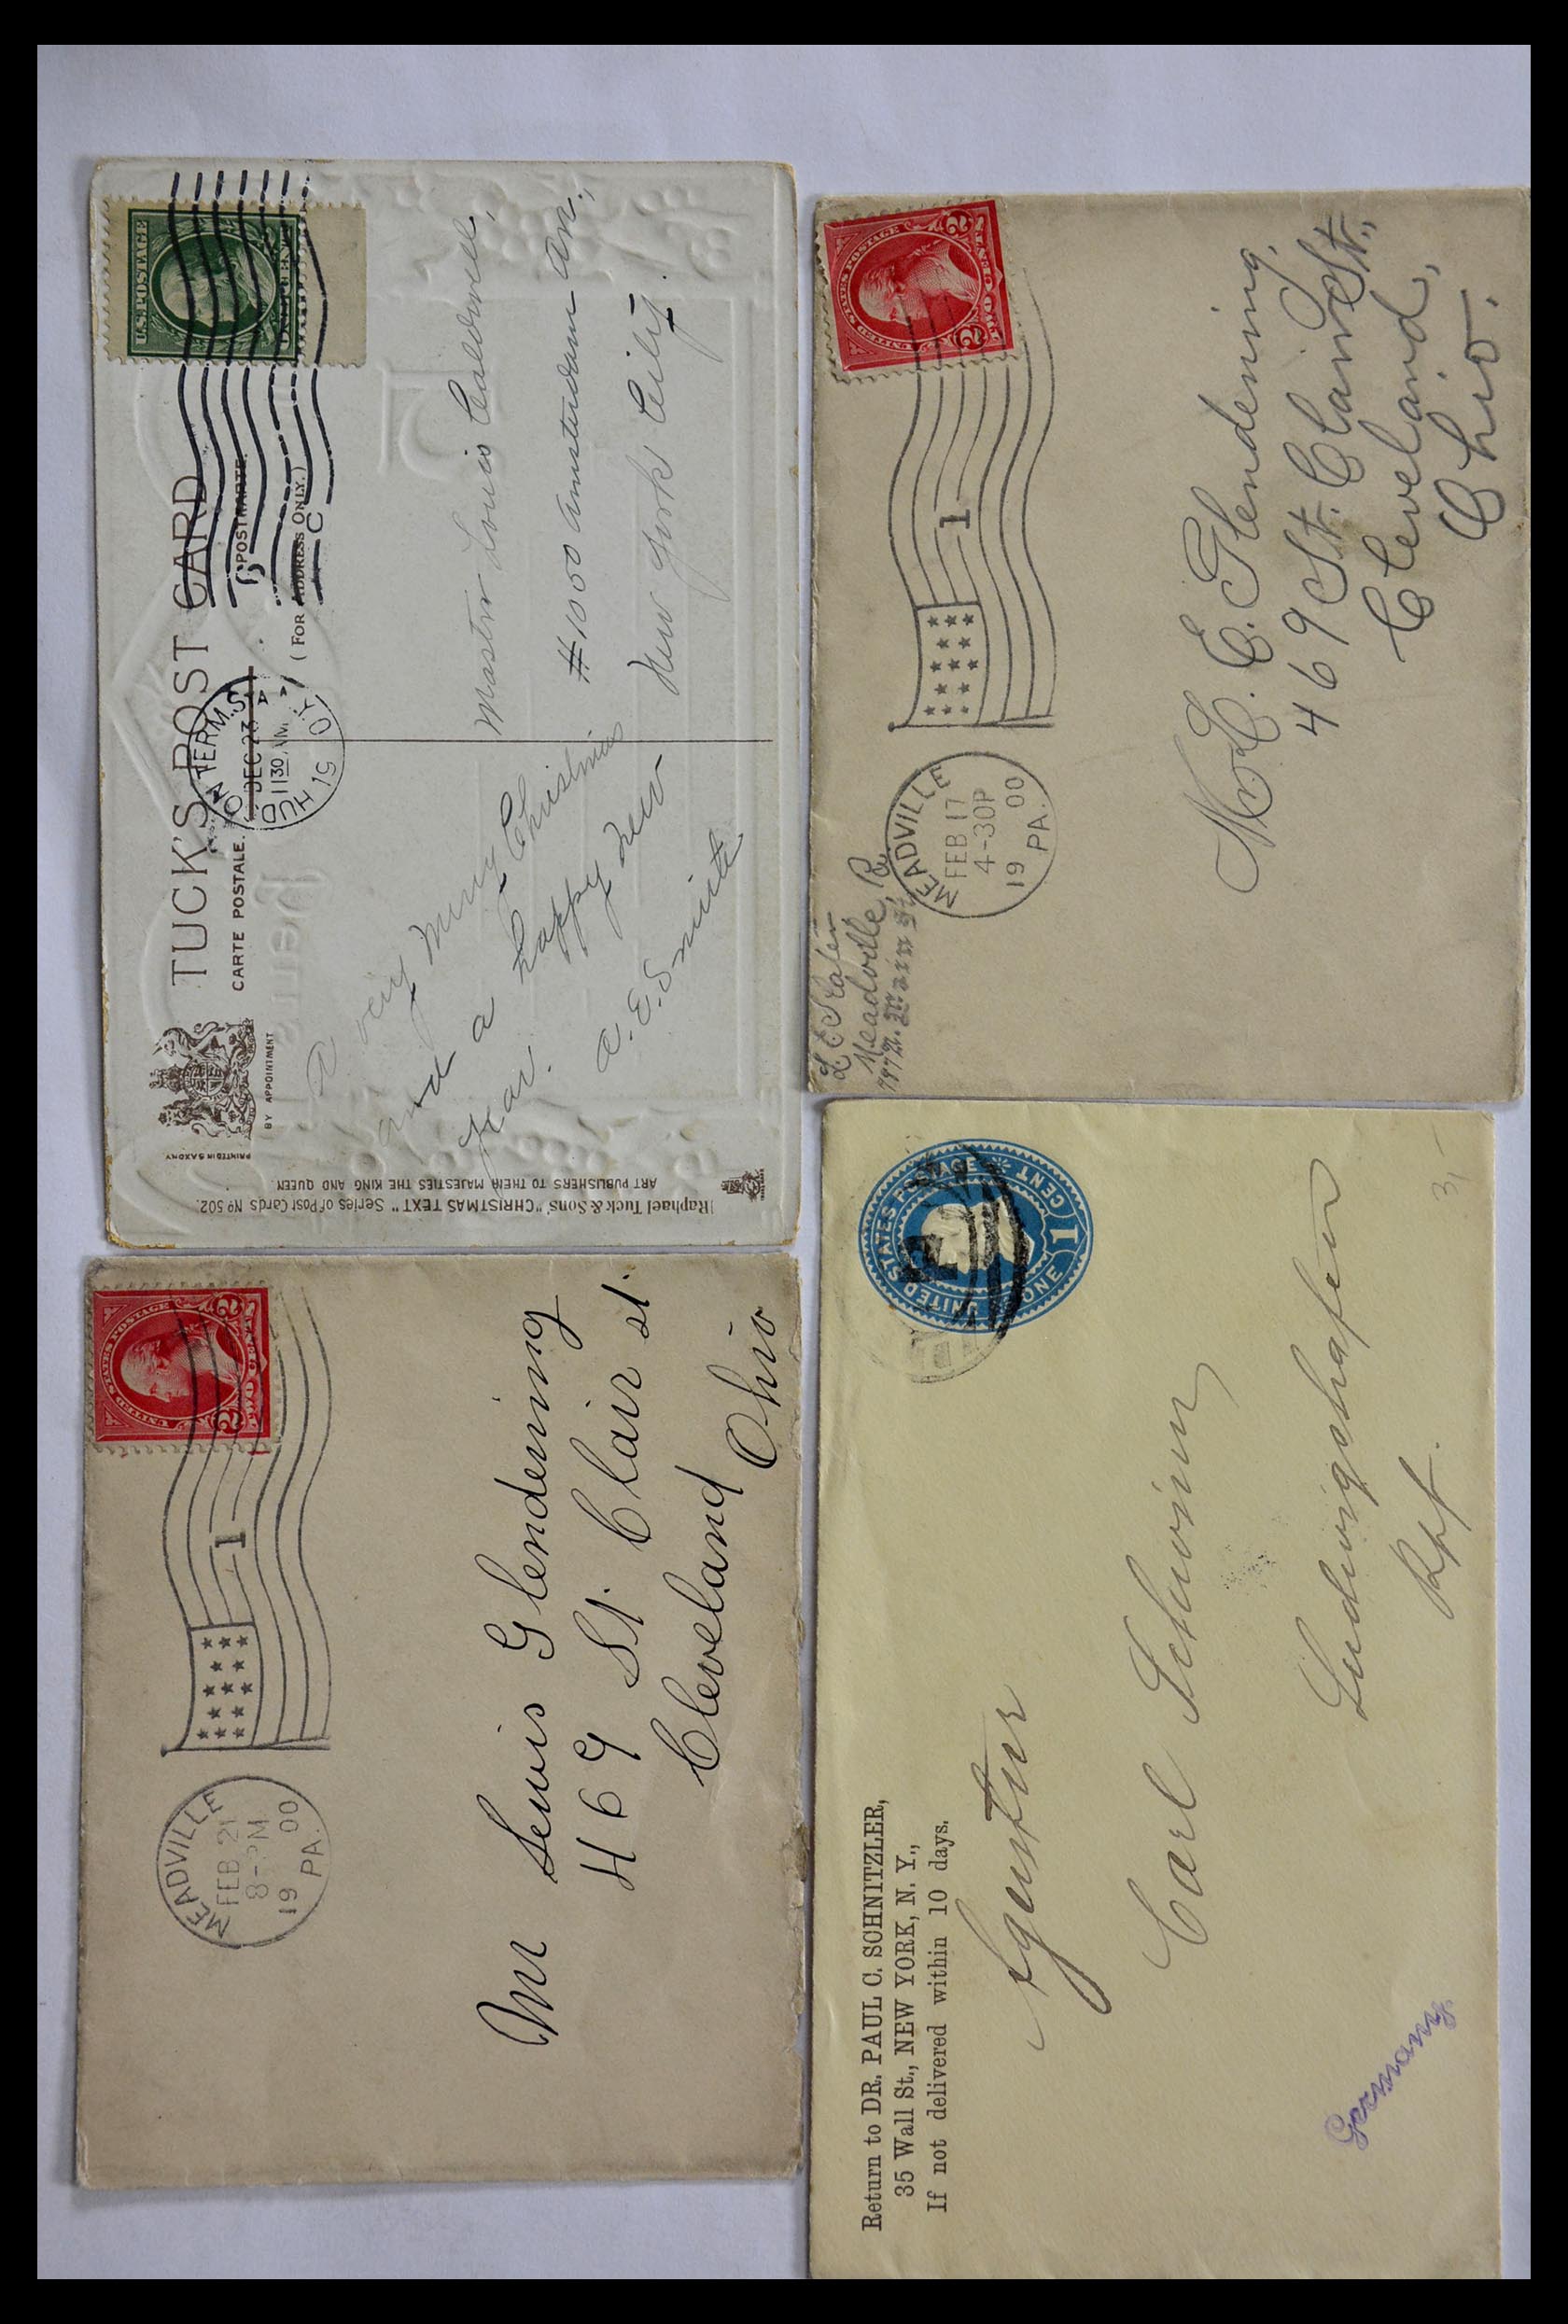 TUCK'S POST CARD
CARTE POSTALE.
POSTKARTE.
(FOR ADDRESS ONLY.)
BY APPOINTMENT
PRINTED IN SAXONY
Raphael Tuck & Sons' "CHRISTMAS TEXT" Series of Post Cards Nº 502.
ART PUBLISHERS TO THEIR MAJESTIES THE KING AND QUEEN.
U.S. POSTAGE
ONE CENT
HUDSON TERM. STA.
DEC 23
11 30 AM
N.Y.
C
A very merry Christmas
and a happy new
year.
A. E. Smith
Master Louis Caldwell,
#1000 Amsterdam Av.,
New York City.
UNITED STATES POSTAGE
2 TWO CENTS 2
1
MEADVILLE
FEB 17
4-30P
1900
PA.
Meadville, Pa.
Main St.
Mr. L. E. Glendening,
469 St. Clair St.,
Cleveland,
Ohio.
UNITED STATES POSTAGE
2 TWO CENTS 2
1
MEADVILLE
FEB 21
8- PM
1900
PA.
Mr Lewis Glendening
469 St. Clair St.
Cleveland
Ohio
Return to DR. PAUL C. SCHNITZLER,
35 Wall St., NEW YORK, N. Y.,
If not delivered within 10 days.
UNITED STATES POSTAGE
ONE 1 CENT
Agentur
Carl Schwinn
Ludwigshafen
Germany
3,-